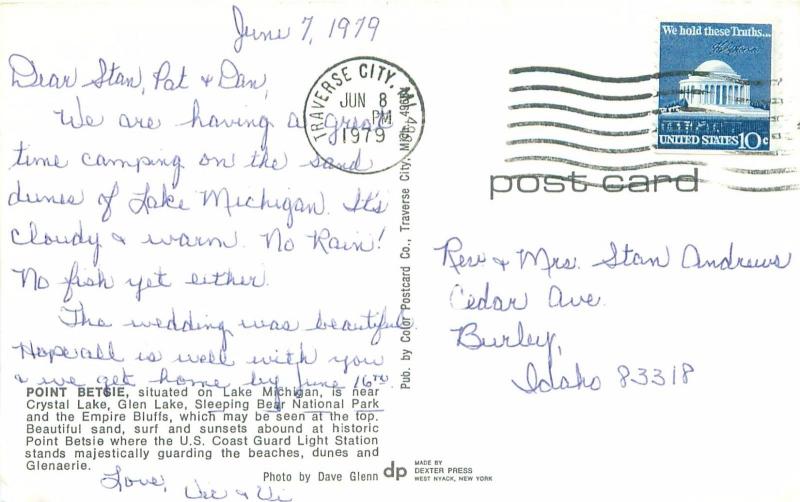 June 7, 1979
Dear Stan, Pat & Dan,
We are having a great
time camping on the sand
dunes of Lake Michigan. It's
cloudy & warm. No Rain!
No fish yet either.
The wedding was beautiful.
Hope all is well with you
& we get home by June 16TH.
POINT BETSIE, situated on Lake Michigan, is near
Crystal Lake, Glen Lake, Sleeping Bear National Park
and the Empire Bluffs, which may be seen at the top.
Beautiful sand, surf and sunsets abound at historic
Point Betsie where the U.S. Coast Guard Light Station
stands majestically guarding the beaches, dunes and
Glenaerie.
Photo by Dave Glenn
Love,
Vic & Vi
TRAVERSE CITY, MI
JUN 8
PM
1979
Pub. by Color Postcard Co., Traverse City, Mich.
dp
MADE BY
DEXTER PRESS
WEST NYACK, NEW YORK
We hold these Truths...
UNITED STATES 10c
post card
Rev & Mrs. Stan Andrews
Cedar Ave.
Burley,
Idaho 83318